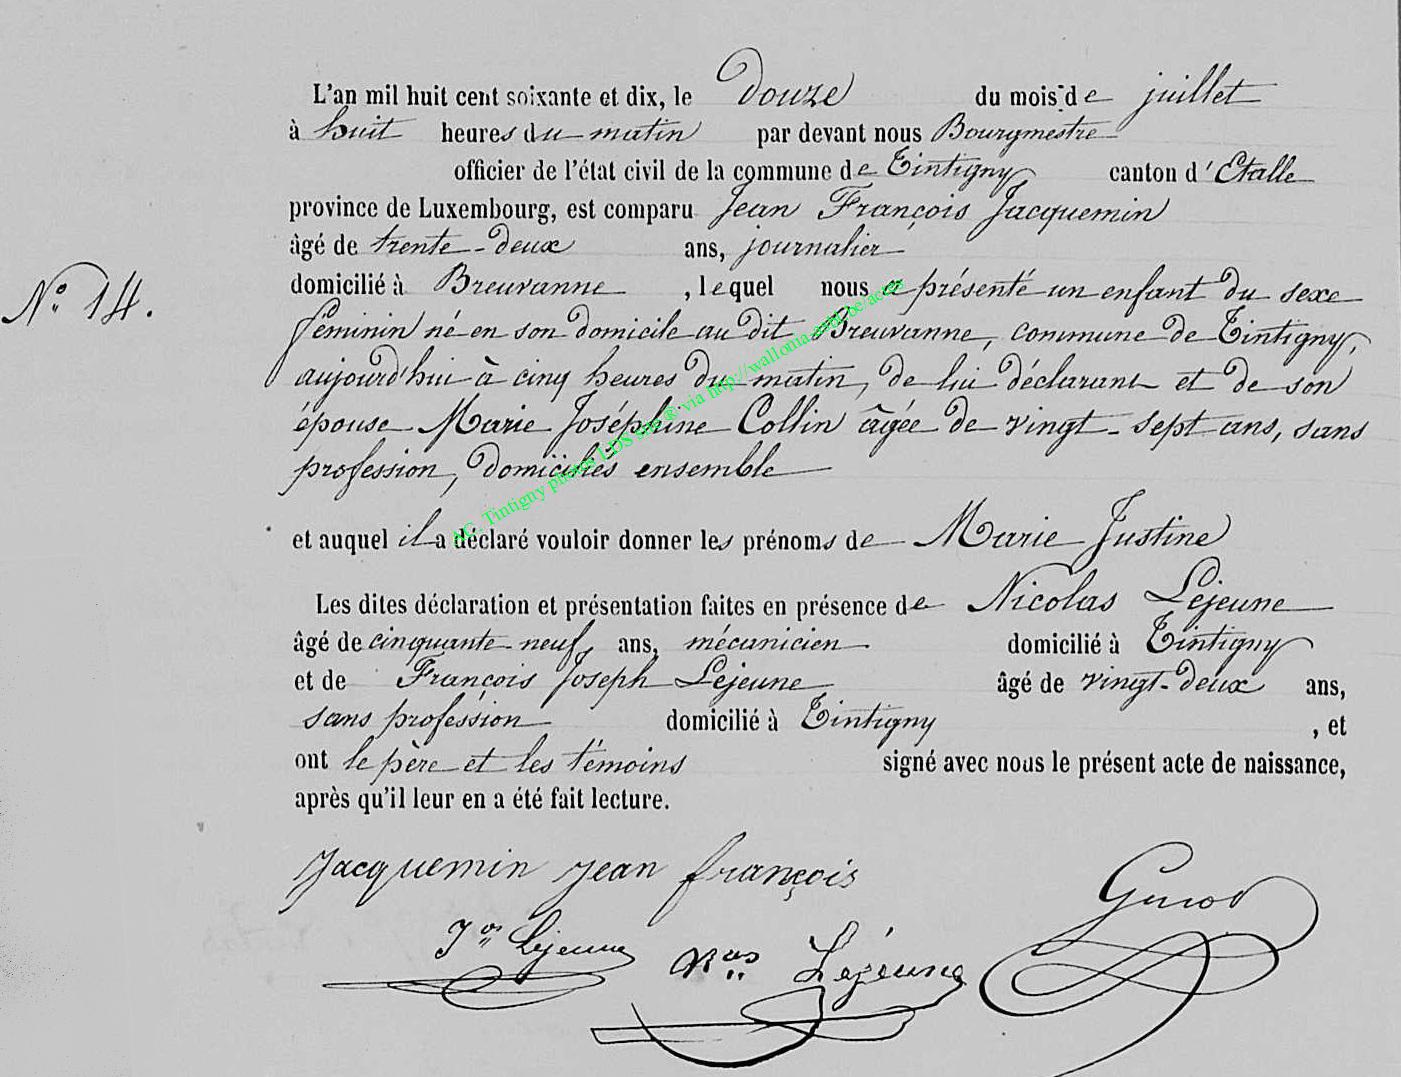 L'an mil huit cent soixante et dix, le Douze du mois de juillet
à huit heures du matin par devant nous Bourgmestre
officier de l'état civil de la commune de Tintigny canton d'Etalle
province de Luxembourg, est comparu Jean François Jacquemin
âgé de trente-deux ans, journalier
N° 14.
domicilié à Breuvanne, lequel nous a présenté un enfant du sexe
féminin né en son domicile au dit Breuvanne, commune de Tintigny,
aujourd'hui à cinq heures du matin, de lui déclarant et de son
épouse Marie Joséphine Collin âgée de vingt-sept ans, sans
profession, domiciliés ensemble
et auquel il a déclaré vouloir donner les prénoms de Marie Justine
Les dites déclaration et présentation faites en présence de Nicolas Lejeune
âgé de cinquante neuf ans, mécanicien domicilié à Tintigny
et de François Joseph Lejeune âgé de vingt-deux ans,
sans profession domicilié à Tintigny, et
ont le père et les témoins signé avec nous le présent acte de naissance,
après qu'il leur en a été fait lecture.
Jacquemin jean françois
Lejeune
Nas Lejeune
AC. Tintigny photos LDS via http://wallonia